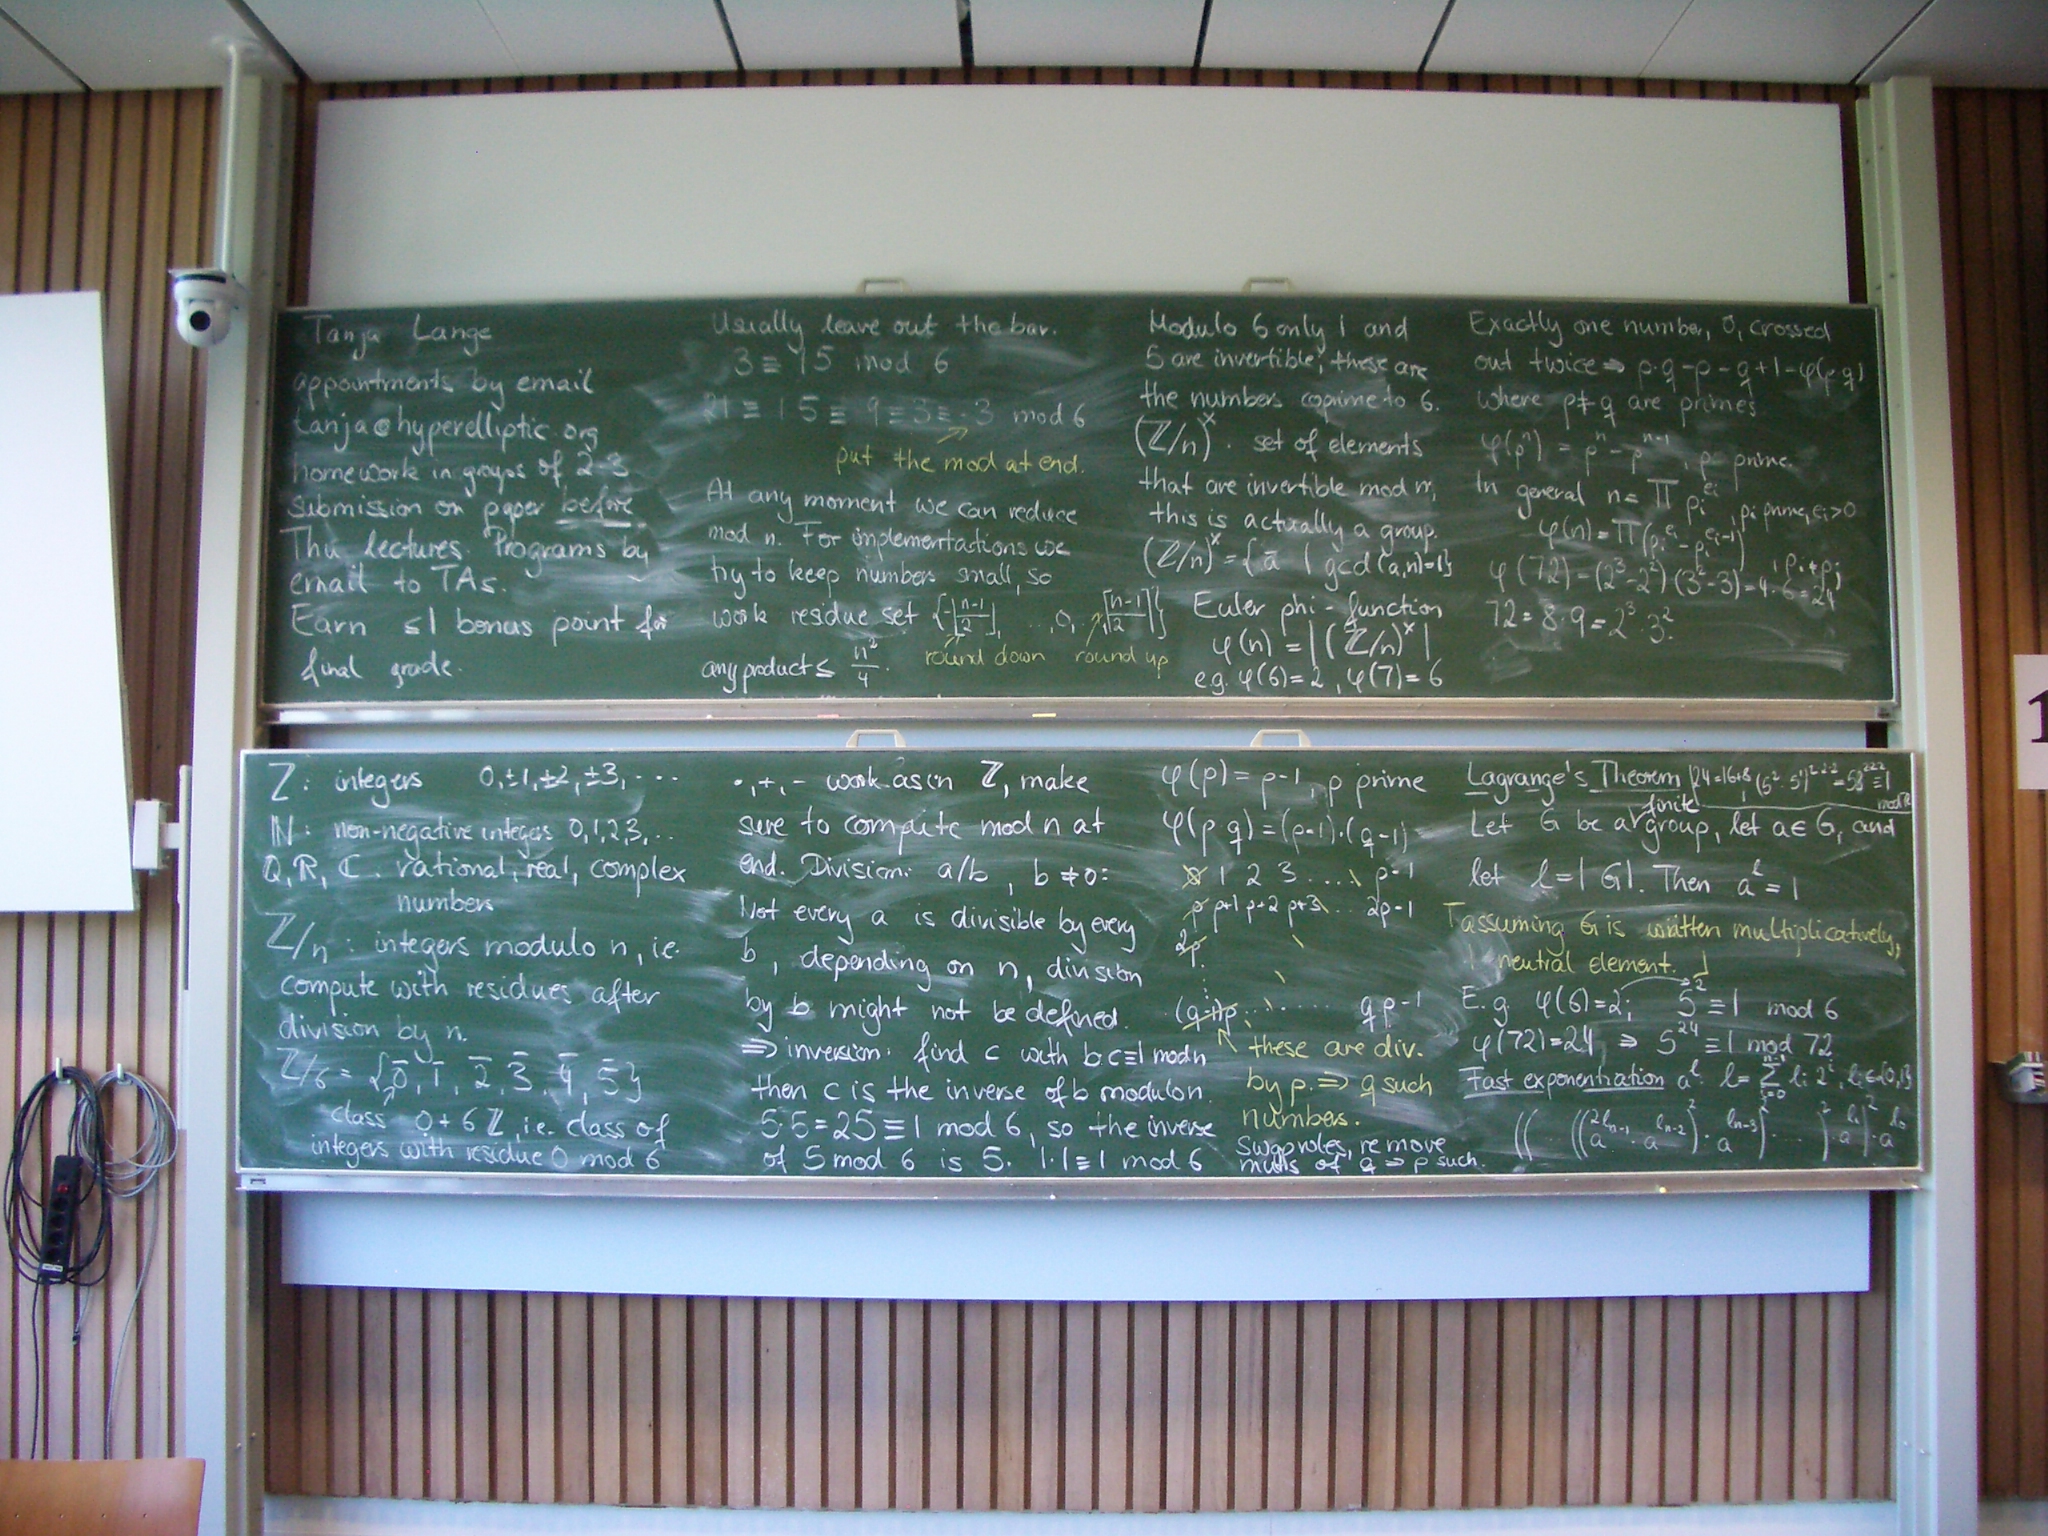 Tanja Lange
appointments by email
tanja@hyperelliptic.org
homework in groups of 2-3
submission on paper before
Thu lectures. Programs by
email to TAs.
Earn ≤1 bonus point for
final grade.
Usually leave out the bar.
3 ≡ 15 mod 6
21 ≡ 15 ≡ 9 ≡ 3 ≡ -3 mod 6
put the mod at end.
At any moment we can reduce
mod n. For implementations we
try to keep numbers small, so
work residue set {-⌊(n-1)/2⌋, ..., 0, ..., ⌈(n-1)/2⌉}
round down round up
any product ≤ n²/4.
Modulo 6 only 1 and
5 are invertible; these are
the numbers coprime to 6.
(ℤ/n)^× . set of elements
that are invertible mod n;
this is actually a group.
(ℤ/n)^× = {ā | gcd(a,n)=1}
Euler phi-function
φ(n) = |(ℤ/n)^×|
e.g. φ(6)=2, φ(7)=6
Exactly one number, 0, crossed
out twice ⇒ p·q-p-q+1=φ(p·q)
where p≠q are primes.
φ(p^n) = p^n - p^(n-1), p prime.
In general n = ∏ p_i^(e_i), p_i prime, e_i>0
φ(n) = ∏(p_i^(e_i) - p_i^(e_i-1)), p_i≠p_j
φ(72) = (2³-2²)(3²-3) = 4·6 = 24
72 = 8·9 = 2³·3².
ℤ: integers 0, ±1, ±2, ±3, ...
ℕ: non-negative integers 0,1,2,3,...
ℚ, ℝ, ℂ : rational, real, complex
numbers
ℤ/n : integers modulo n, i.e.
compute with residues after
division by n.
ℤ/6 = {0̄, 1̄, 2̄, 3̄, 4̄, 5̄}
class 0+6ℤ, i.e. class of
integers with residue 0 mod 6
·, +, - work as in ℤ, make
sure to compute mod n at
end. Division: a/b, b≠0:
Not every a is divisible by every
b, depending on n, division
by b might not be defined.
⇒ inversion: find c with b·c≡1 mod n
then c is the inverse of b modulo n.
5·5=25≡1 mod 6, so the inverse
of 5 mod 6 is 5. 1·1≡1 mod 6
φ(p) = p-1, p prime
φ(p·q) = (p-1)·(q-1)
0 1 2 3 .... p-1
p p+1 p+2 p+3 ... 2p-1
2p
(q-1)p ...... qp-1
these are div.
by p. ⇒ q such
numbers.
Swap roles, remove
mults of q ⇒ p such.
Lagrange's Theorem
Let G be a finite group, let a∈G, and
let l=|G|. Then a^l = 1
[assuming G is written multiplicatively,
1 neutral element.]
E.g. φ(6)=2; 5² ≡ 1 mod 6
φ(72)=24 ⇒ 5^24 ≡ 1 mod 72
Fast exponentiation a^l. l = Σ_(i=0)^(n-1) l_i 2^i, l_i∈{0,1}
((...((a^(2l_(n-1)) · a^(l_(n-2)))² · a^(l_(n-3)))² ...)² · a^(l_1))² · a^(l_0)